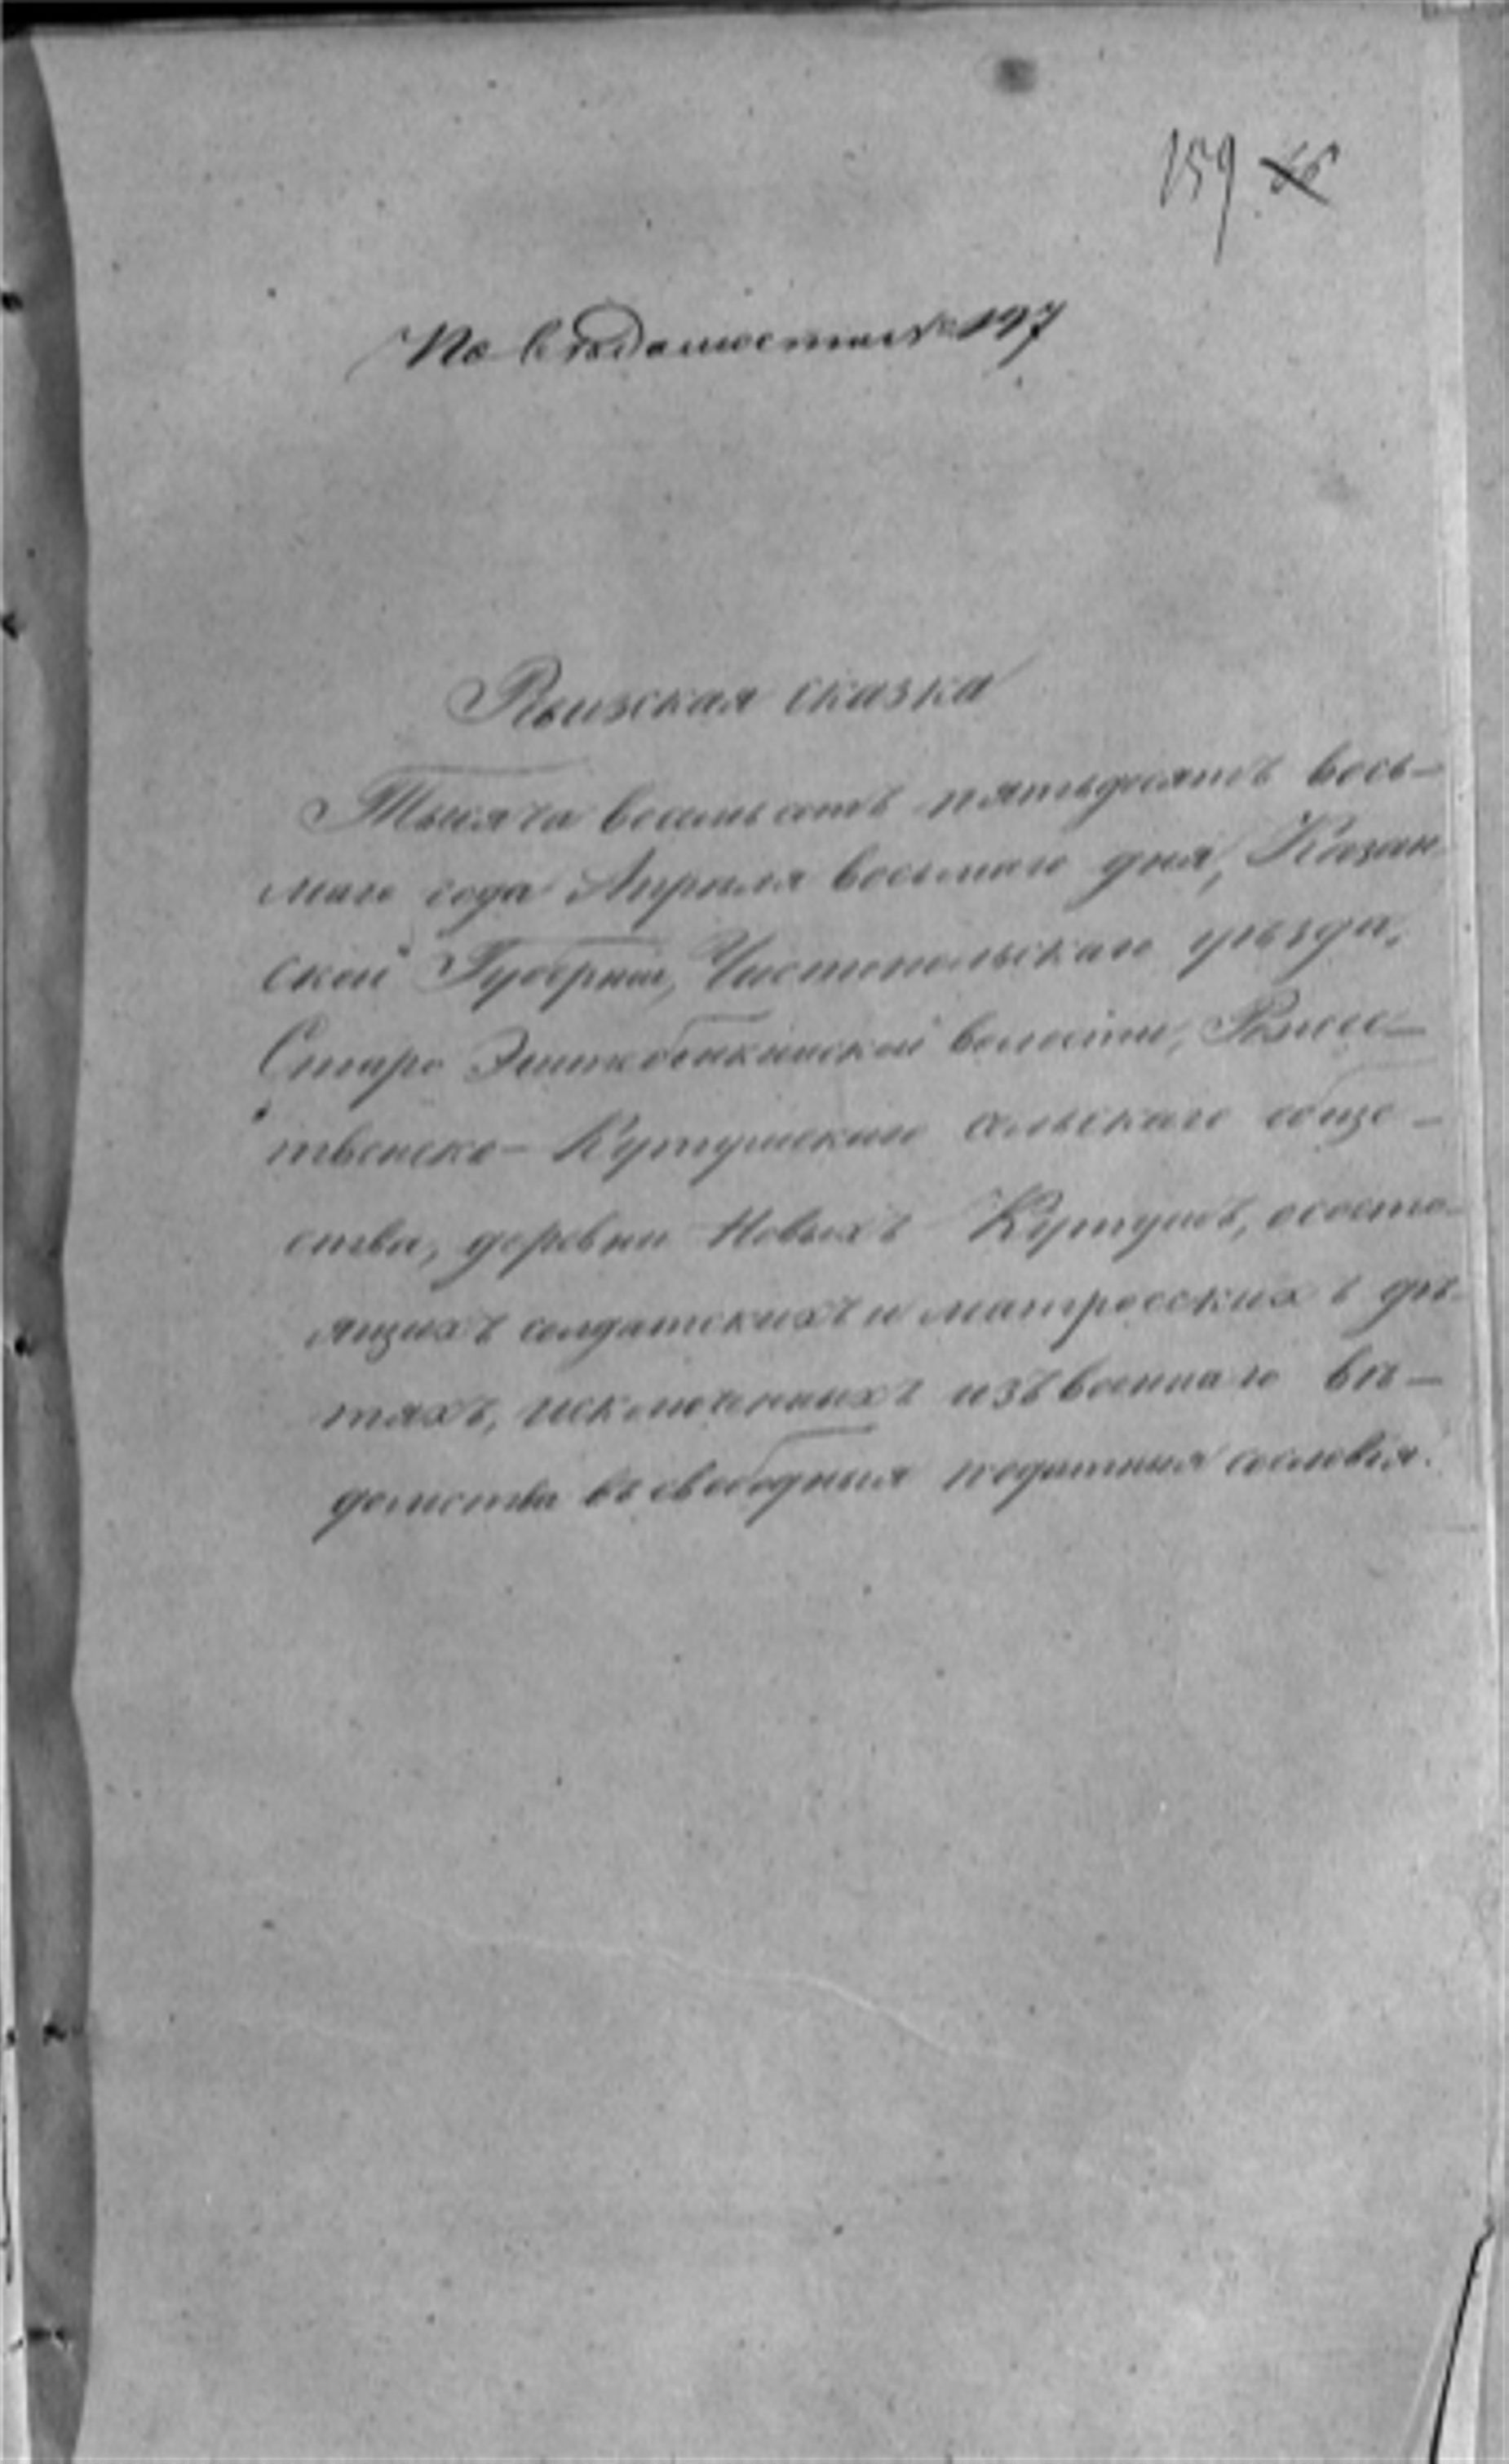 159
По Ведомости № 197
Ревизская сказка
Тысяча восемьсотъ пятьдесятъ вось-
маго года Апреля восьмаго дня, Казан
ской Губерніи, Чистопольскаго уѣзда,
Старо Эштебенькинской волости, Рожест-
твенско-Кутушскаго сельскаго обще-
ства, деревни Новыхъ Кутушъ, о состо-
ящихъ солдатскихъ и матросскихъ дѣ-
тяхъ, исключенныхъ изъ военнаго вѣ-
домства въ свободныя податныя сословія.